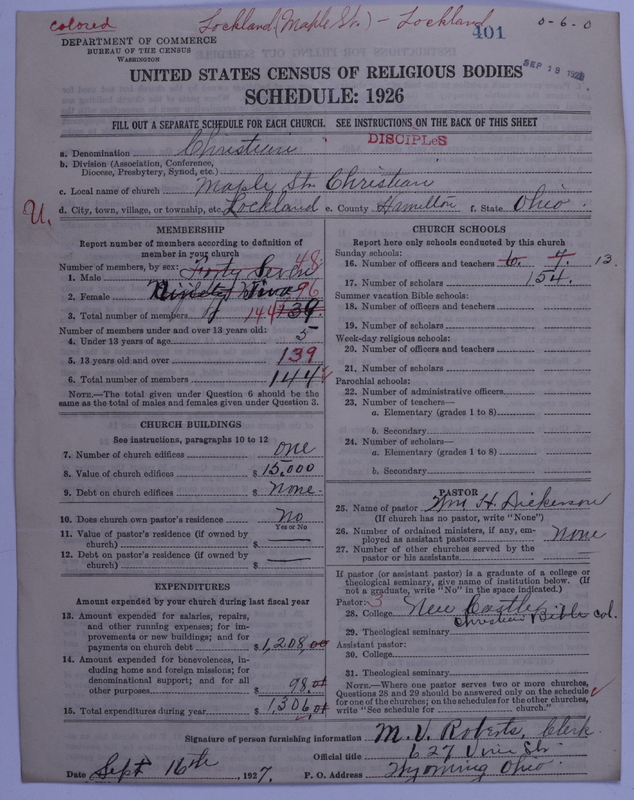 colored
Lockland (Maple St.) - Lockland
401
0-6-0
DEPARTMENT OF COMMERCE
BUREAU OF THE CENSUS
WASHINGTON
UNITED STATES CENSUS OF RELIGIOUS BODIES
SCHEDULE: 1926
FILL OUT A SEPARATE SCHEDULE FOR EACH CHURCH. SEE INSTRUCTIONS ON THE BACK OF THIS SHEET
a. Denomination Christian
DISCIPLES
b. Division (Association, Conference,
Diocese, Presbytery, Synod, etc.)
c. Local name of church Maple St. Christian
U. d. City, town, village, or township, etc. Lockland e. County Hamilton f. State Ohio.
MEMBERSHIP
Report number of members according to definition of
member in your church
Number of members, by sex:
1. Male Forty Seven 48
2. Female Ninety Two 96
3. Total number of members 144 139
Number of members under and over 13 years old:
4. Under 13 years of age 5
5. 13 years old and over 139
6. Total number of members 144
NOTE.—The total given under Question 6 should be the
same as the total of males and females given under Question 3.
CHURCH BUILDINGS
See instructions, paragraphs 10 to 12
7. Number of church edifices one
8. Value of church edifices $ 15,000
9. Debt on church edifices $ none.
10. Does church own pastor's residence No
Yes or No
11. Value of pastor's residence (if owned by
church) $
12. Debt on pastor's residence (if owned by
church) $
EXPENDITURES
Amount expended by your church during last fiscal year
13. Amount expended for salaries, repairs,
and other running expenses; for im-
provements or new buildings; and for
payments on church debt $ 1,208.00
14. Amount expended for benevolences, in-
cluding home and foreign missions; for
denominational support; and for all
other purposes $ 98.01
15. Total expenditures during year $ 1,306.01
CHURCH SCHOOLS
Report here only schools conducted by this church
Sunday schools:
16. Number of officers and teachers 6. 7. 13.
17. Number of scholars 154.
Summer vacation Bible schools:
18. Number of officers and teachers
19. Number of scholars
Week-day religious schools:
20. Number of officers and teachers
21. Number of scholars
Parochial schools:
22. Number of administrative officers
23. Number of teachers—
a. Elementary (grades 1 to 8)
b. Secondary
24. Number of scholars—
a. Elementary (grades 1 to 8)
b. Secondary
PASTOR
25. Name of pastor Wm H. Dickerson
(If church has no pastor, write "None")
26. Number of ordained ministers, if any, em-
ployed as assistant pastors None
27. Number of other churches served by the
pastor or his assistants
If pastor (or assistant pastor) is a graduate of a college or
theological seminary, give name of institution below. (If
not a graduate, write "No" in the space indicated.)
Pastor: 3
28. College New Castle
Christian Bible Col.
29. Theological seminary
Assistant pastor:
30. College
31. Theological seminary
NOTE.—Where one pastor serves two or more churches,
Questions 28 and 29 should be answered only on the schedule
for one of the churches; on the schedules for the other churches,
write "See schedule for church."
Signature of person furnishing information M. V. Roberts, Clerk
Official title 627 Vine St.
Date Sept 16th, 1927. P. O. Address Wyoming Ohio.